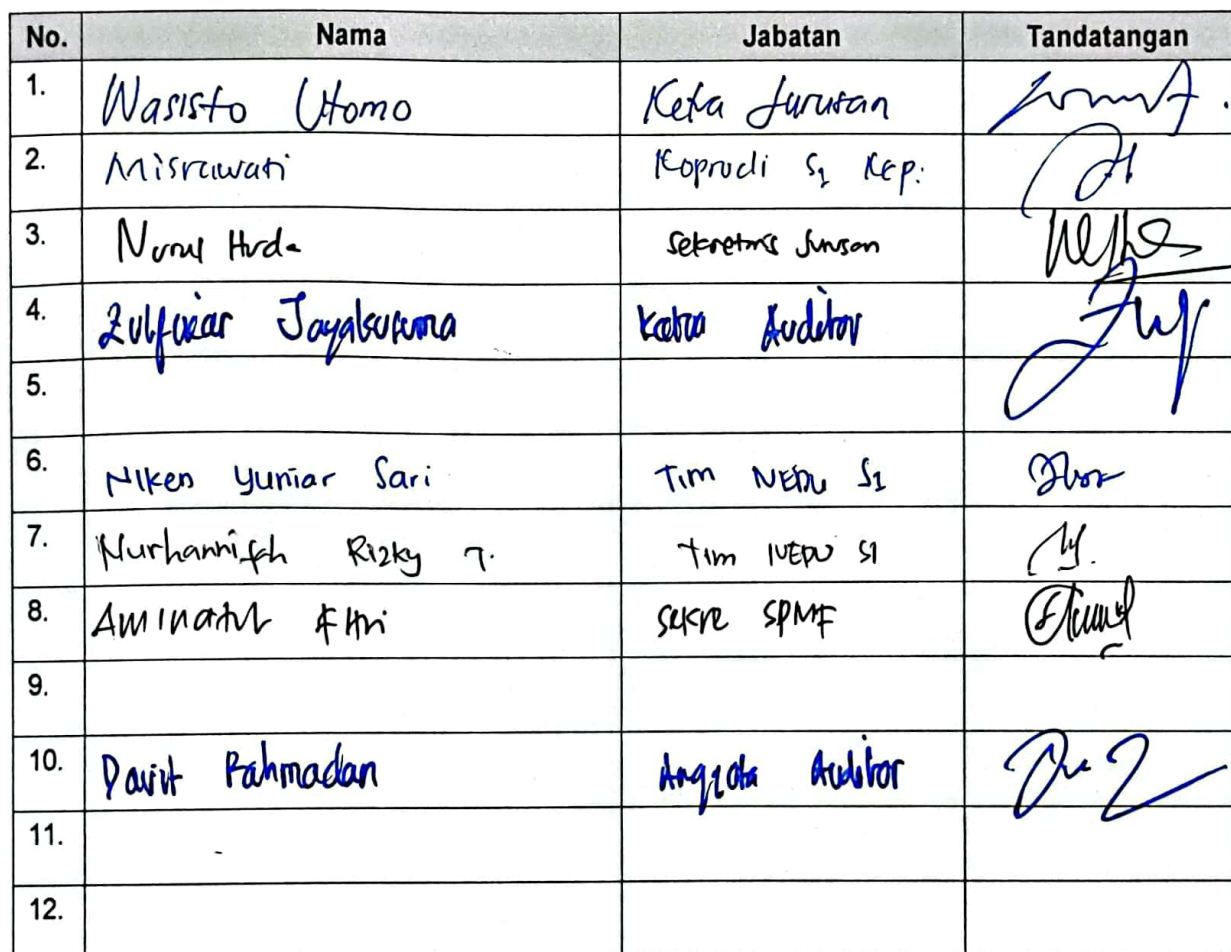 No. Nama Jabatan Tandatangan
1. Wasisto Utomo Keta Jurusan
2. Misrawati Koprodi S1 Kep.
3. Nurul Huda Sekretaris Jurusan
4. Zulfikar Jayakusuma Ketua Auditor
5.
6. Niken Yuniar Sari Tim NEDU S1
7. Nurhannifah Rizky T. Tim NEDU S1
8. Aminatul Fitri Sekre SPMF
9.
10. Davit Rahmadan Anggota Auditor
11.
12.